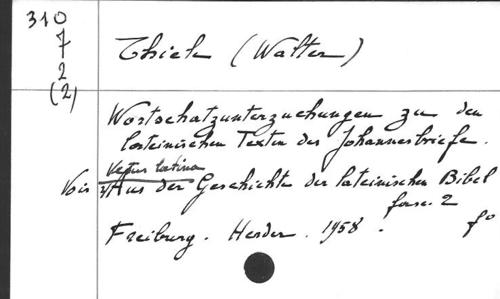 310
7
2
(2)
Thiele (Walter)
Wortschatzunterzuchungen zu den
lateinischen Texten der Johannesbriefe.
Vetus latina
Voir Aus der Geschichte der lateinischen Bibel
fasc. 2
Freiburg. Herder. 1958. f°